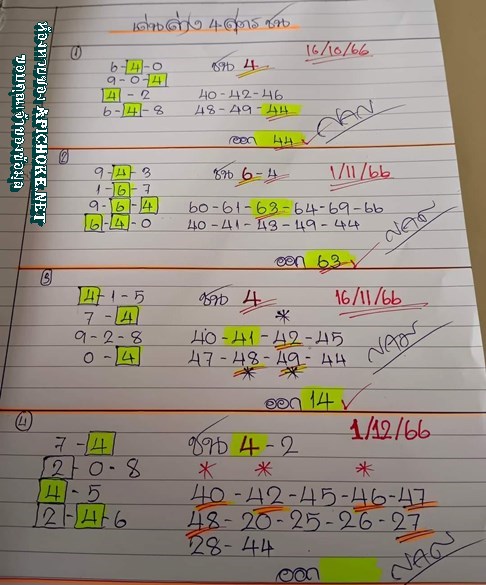 เด่นล่าง 4 สูตร ชน
①
16/10/66
6-4-0 ชน 4
9-0-4
4-2 40-42-46
6-4-8 48-49-44
ออก 44
②
9-4-3 ชน 6-4 1/11/66
1-6-7
9-6-4 60-61-63-64-69-66
6-4-0 40-41-43-49-44
ออก 63 ✓
③
4-1-5 ชน 4 16/11/66
7-4 *
9-2-8 40-41-42-45
0-4 47-48-49-44
* *
ออก 14 ✓
④
1/12/66
7-4 ชน 4-2
2-0-8 * * *
4-5 40-42-45-46-47
2-4-6 48-20-25-26-27
28-44
ออก
ห้องหวยของ APICHOKE.NET
ขอบคุณเจ้าของข้อมูล